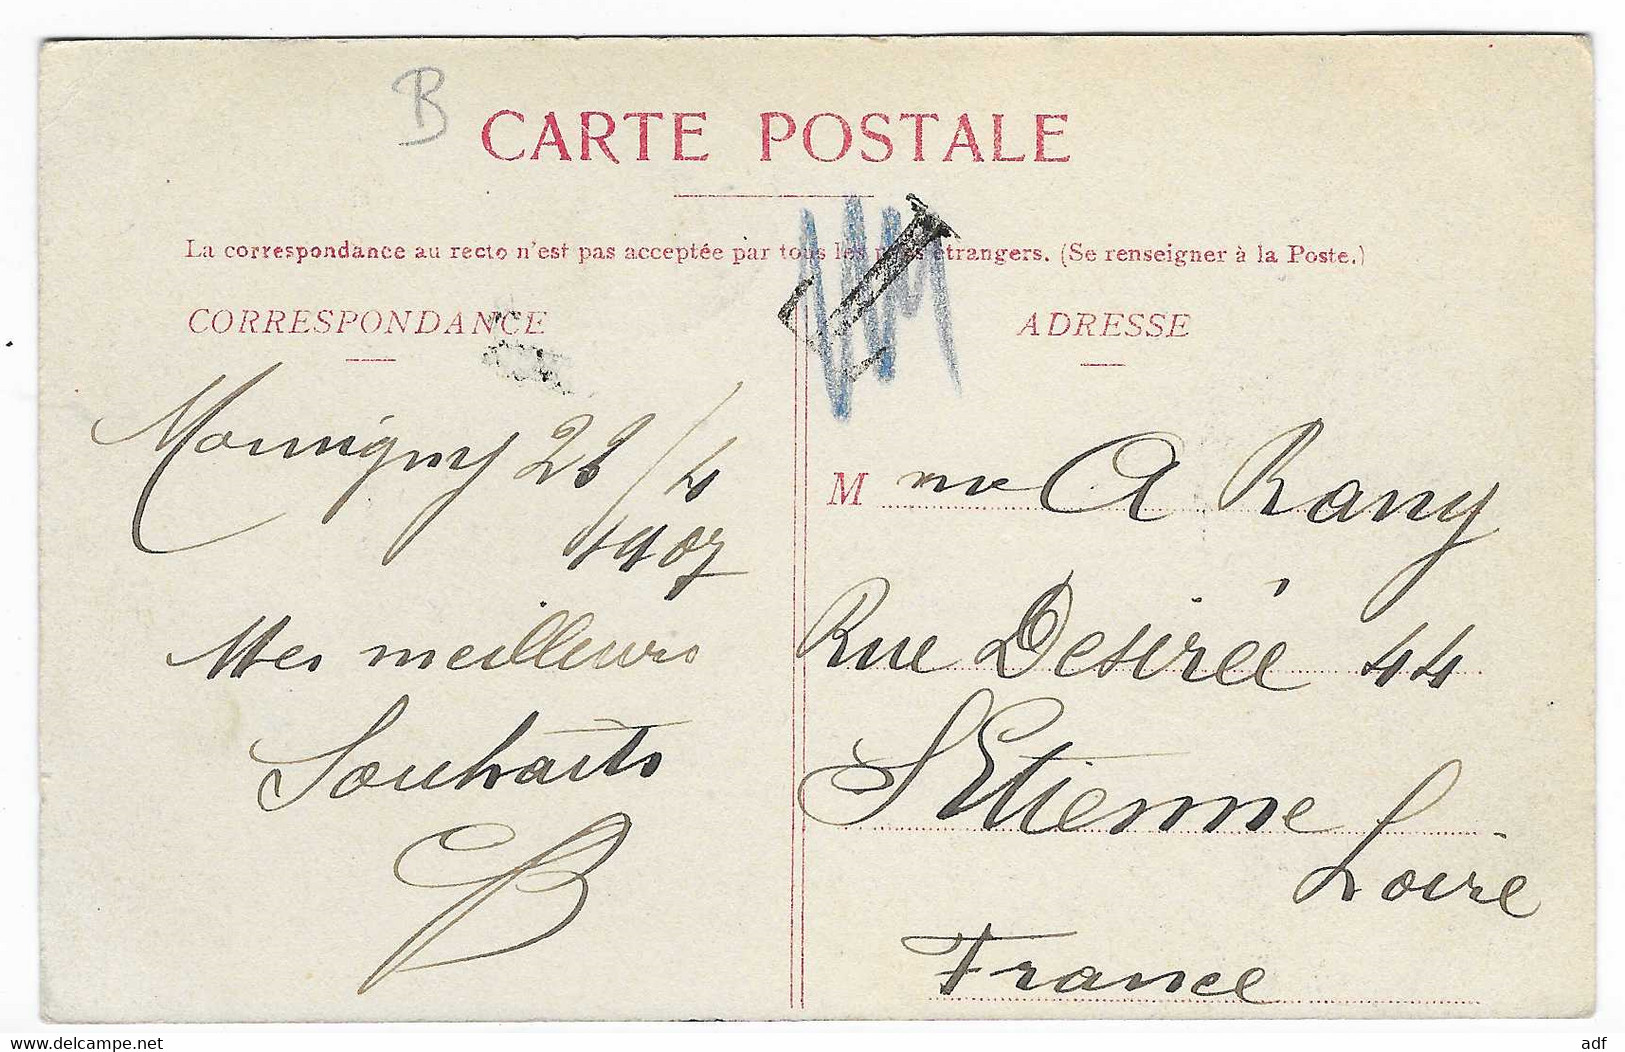 B
CARTE POSTALE
La correspondance au recto n'est pas acceptée par tous les pays étrangers. (Se renseigner à la Poste.)
T
CORRESPONDANCE
28/4
1907
Mes meilleurs
Souhaits
CB
ADRESSE
M me A Rany
Rue Desirée 44
St Etienne
Loire
France
www.delcampe.net
adf